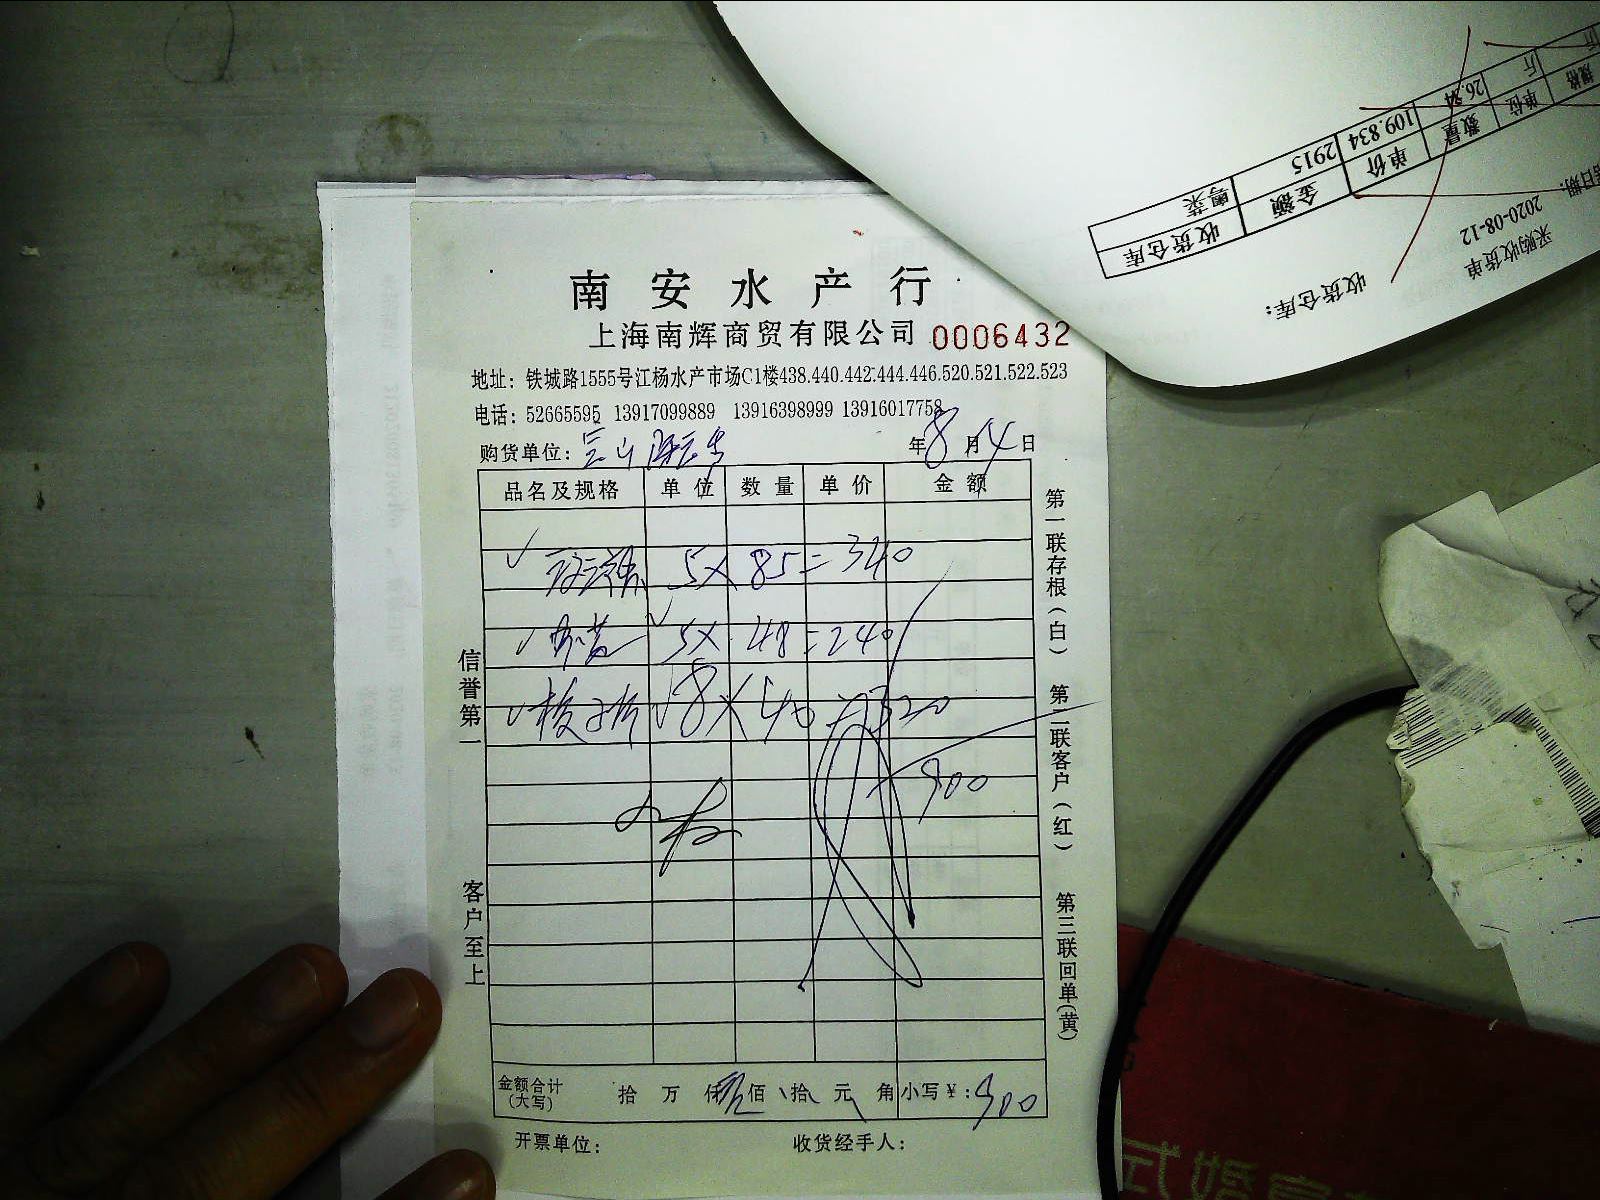 南安水产行
上海南辉商贸有限公司 0006432
地址：铁城路1555号江杨水产市场C1楼438.440.442.444.446.520.521.522.523
电话：52665595 13917099889 13916398999 13916017758
购货单位： 年8月14日
品名及规格 单位 数量 单价 金额
5×85=340
5×48=240
8×40=320
900
金额合计（大写） 拾 万 仟 玖佰 拾 元 角 小写￥：900
开票单位： 收货经手人：
信誉第一
客户至上
第一联存根（白）
第二联客户（红）
第三联回单（黄）
采购收货单
2020-08-12
收货仓库：
规格 单位 数量 单价 金额 收货仓库
斤 26.54 109.834 2915 粤菜